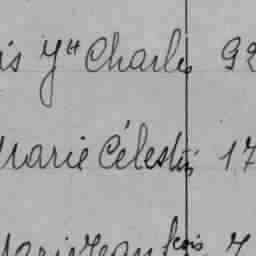 is Yte Charles 92
Marie Célestine 17
Marie Jean fcois 7